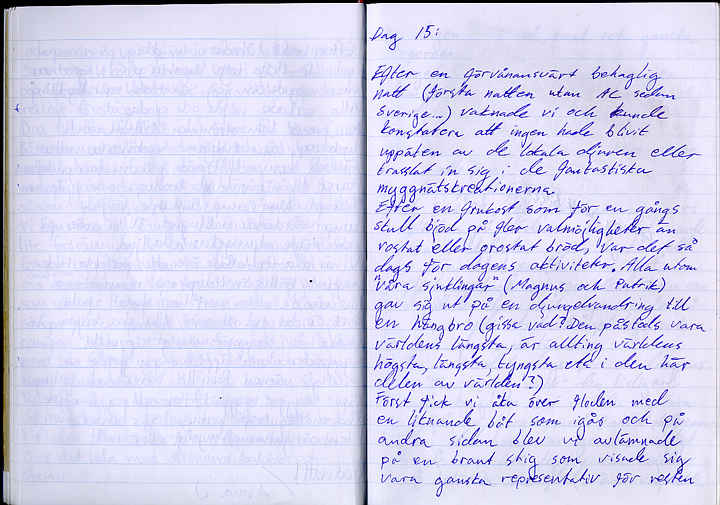 Dag 15:
Efter en förvånansvärt behaglig
natt (första natten utan AC sedan
Sverige...) vaknade vi och kunde
konstatera att ingen hade blivit
uppäten av de lokala djuren eller
trasslat in sig i de fantastiska
myggnätskreationerna.
Efter en frukost som för en gångs
skull bjöd på fler valmöjligheter än
rostat eller orostat bröd, var det så
dags för dagens aktiviteter. Alla utom
"våra sjuklingar" (Magnus och Patrik)
gav sig ut på en djungelvandring till
en hängbro (gissa vad? Den påstods vara
världens längsta, är allting världens
högsta, längsta, tyngsta etc i den här
delen av världen?)
Först fick vi åka över floden med
en liknande båt som igår och på
andra sidan blev vi avlämnade
på en brant stig som visade sig
vara ganska representativ för resten